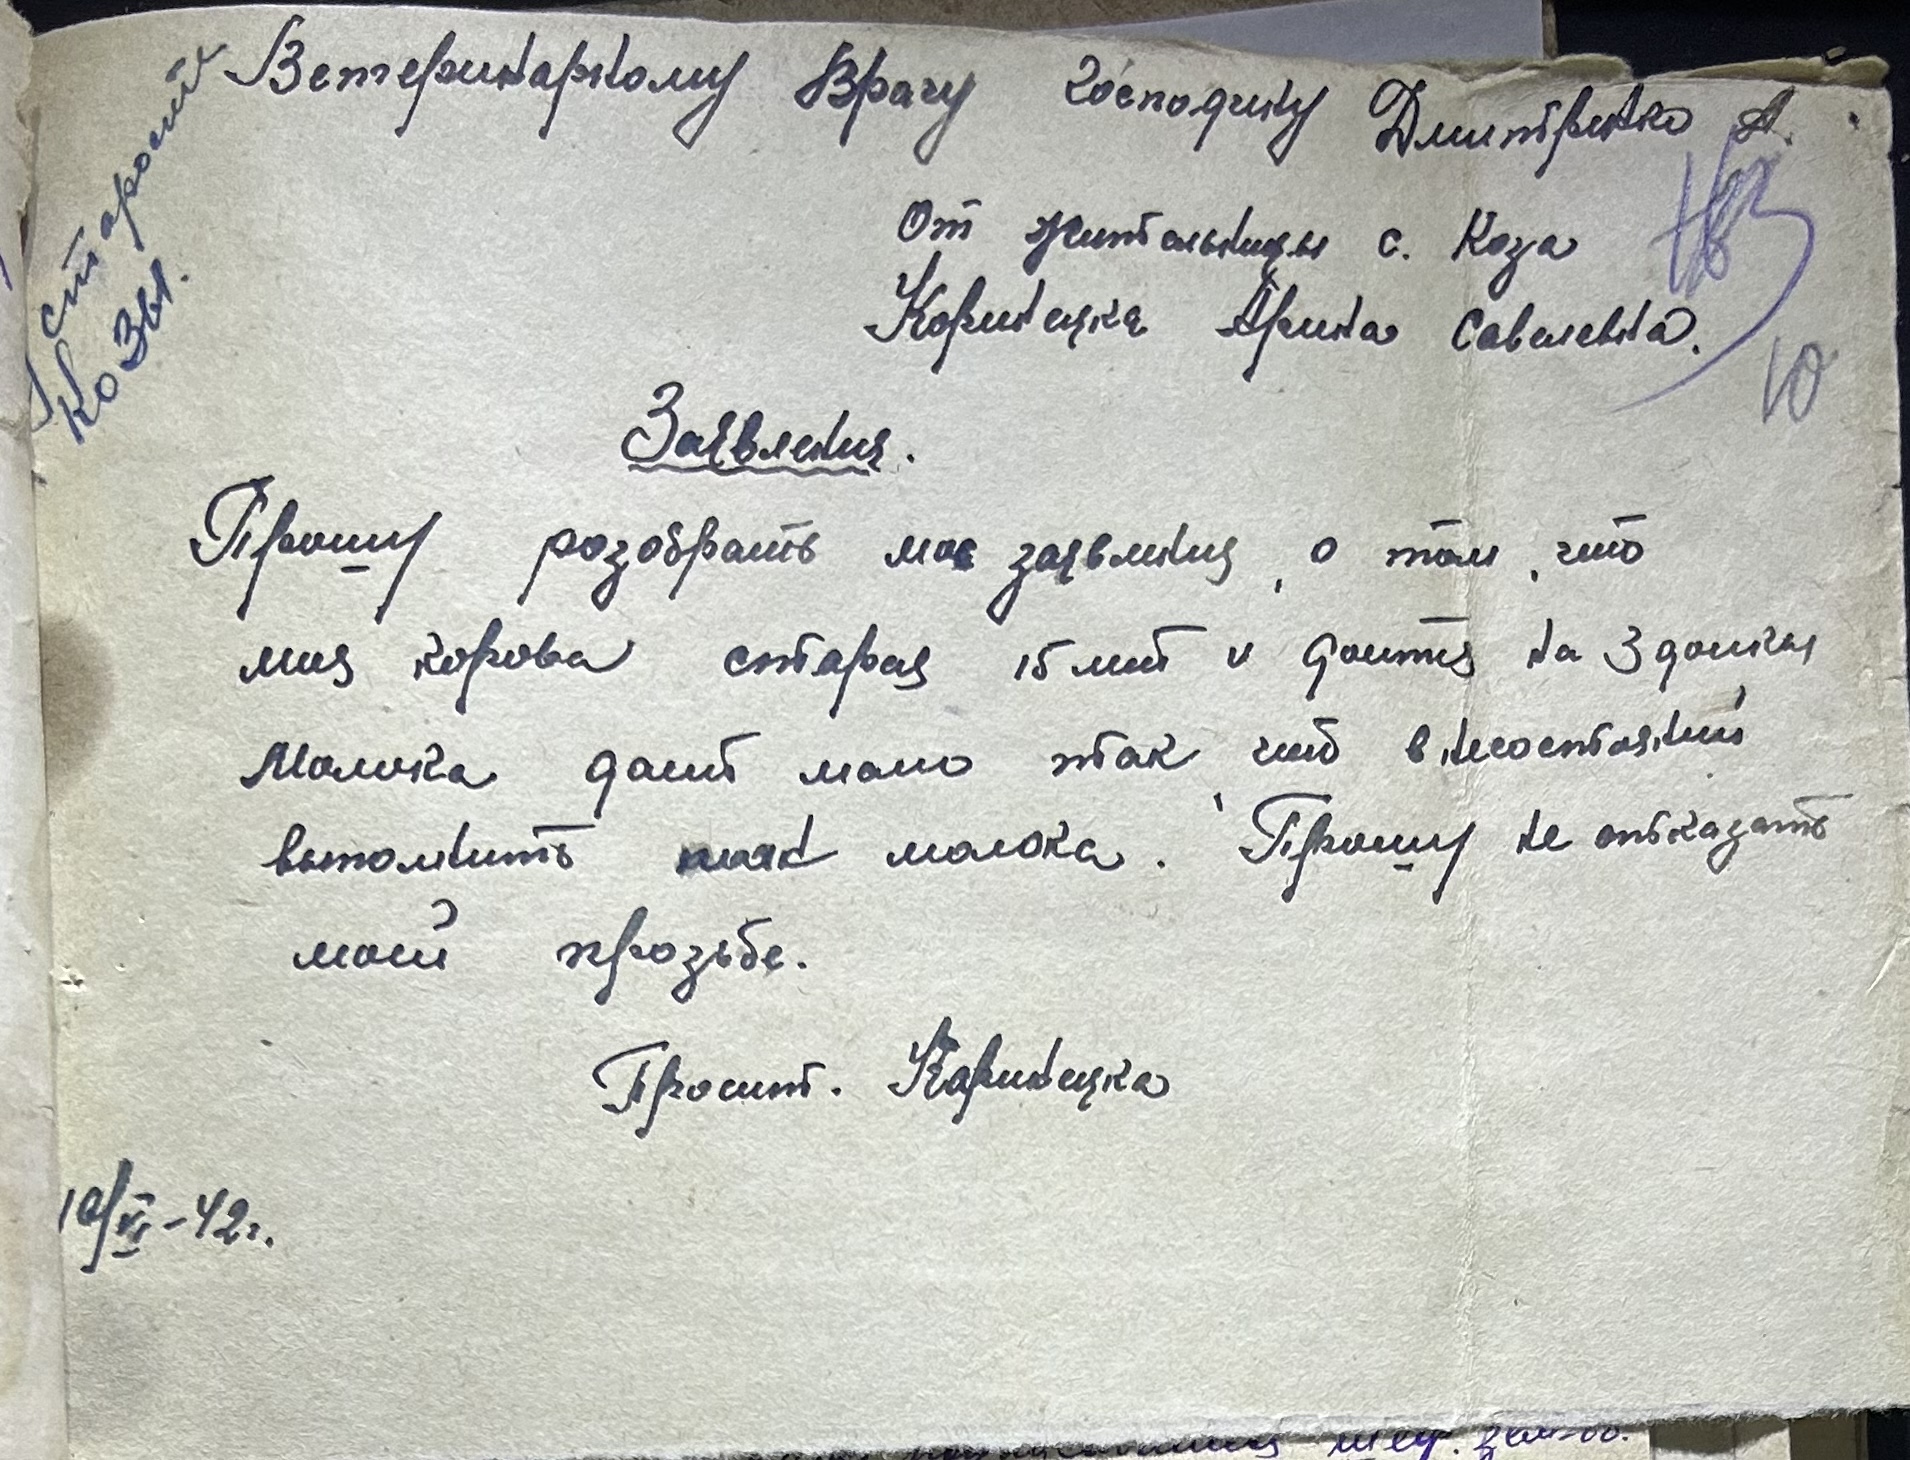 Ветеринарному Врачу Господину Дмитренко А.
старости
Козы.
От жительницы с. Коза
Кориницка Арина Савелевна.
10
Заявления.
Прошу розобрать мое заявления, о том, что
моя корова старая 15 лет и доится на 3 дойки
Молока даёт мало так что в несостоянии
выполнить план молока. Прошу не отказать
моей прозьбе.
Просит. Кориницка
10/VI-42г.